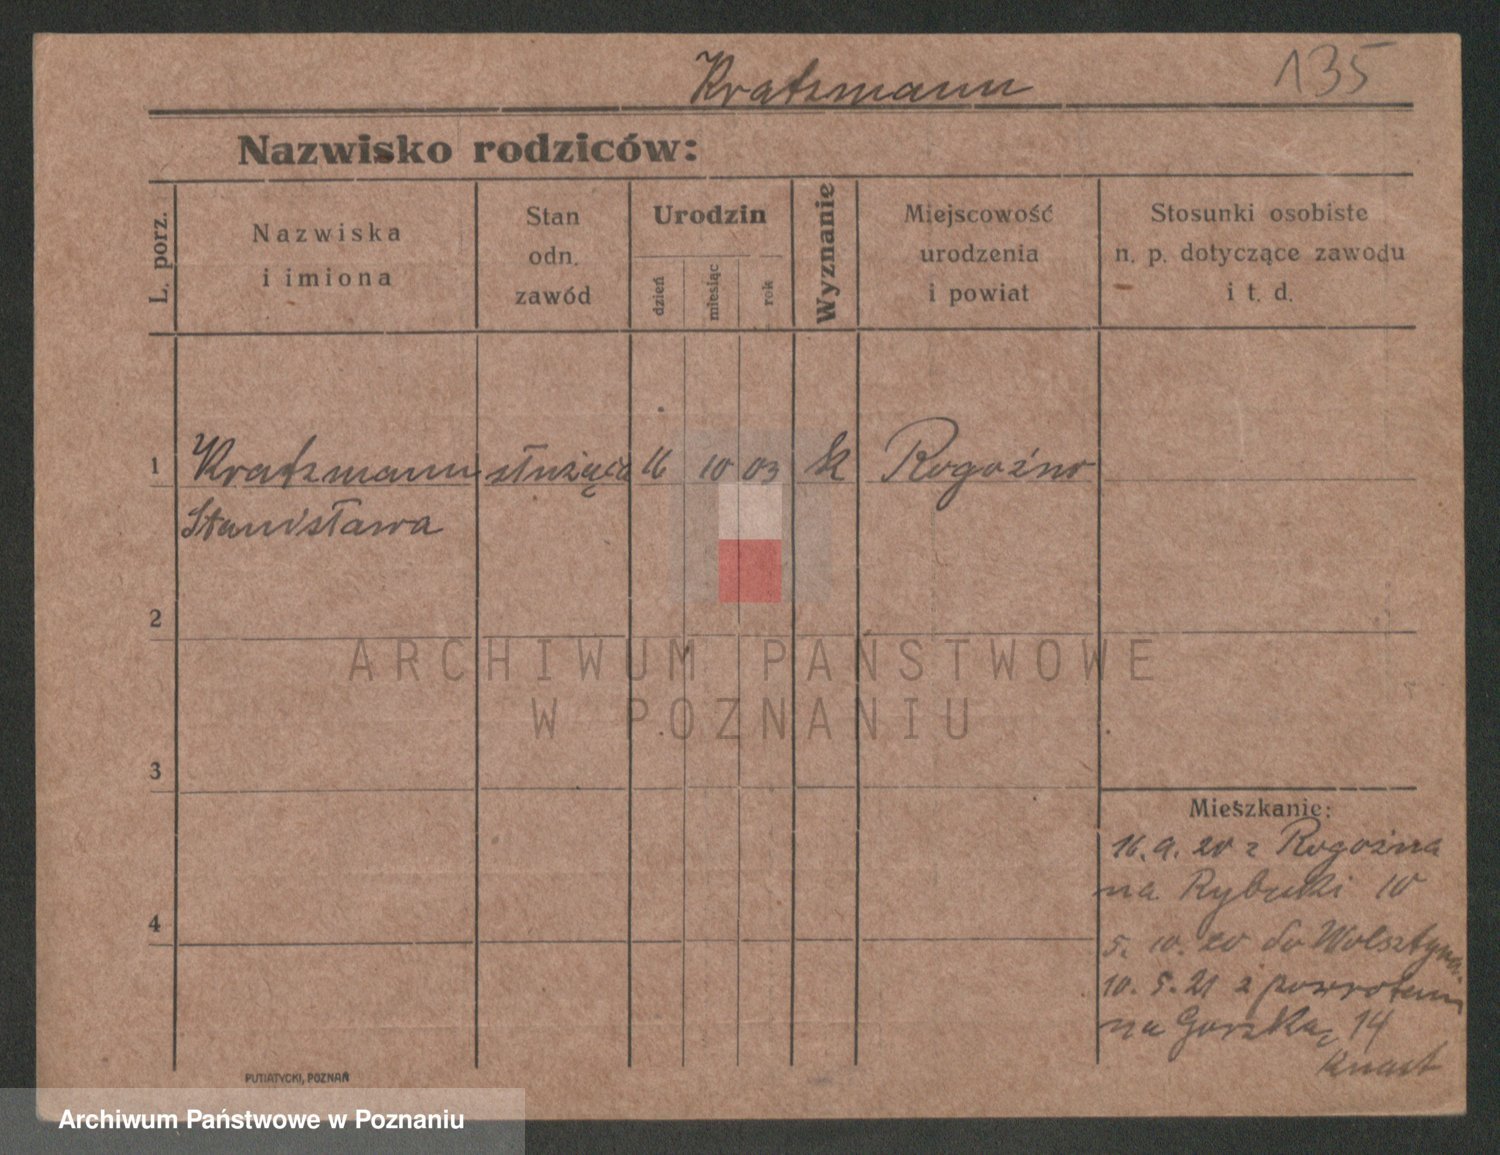 Kratzmann
135
Nazwisko rodziców:
L. porz.
Nazwiska
i imiona
Stan
odn.
zawód
Urodzin
dzień
miesiąc
rok
Wyznanie
Miejscowość
urodzenia
i powiat
Stosunki osobiste
n. p. dotyczące zawodu
i t. d.
1
Kratzmann służąca 16 10 03 k Rogoźno
Stanisława
2
ARCHIWUM PAŃSTWOWE
W POZNANIU
3
Mieszkanie:
16.9.20 z Rogoźna
na Rybaki 10
4
5. 10. 20 do Wolsztyna
10. 5. 21 z powrotem
na Gorską 14
PUTIATYCKI, POZNAŃ
Archiwum Państwowe w Poznaniu